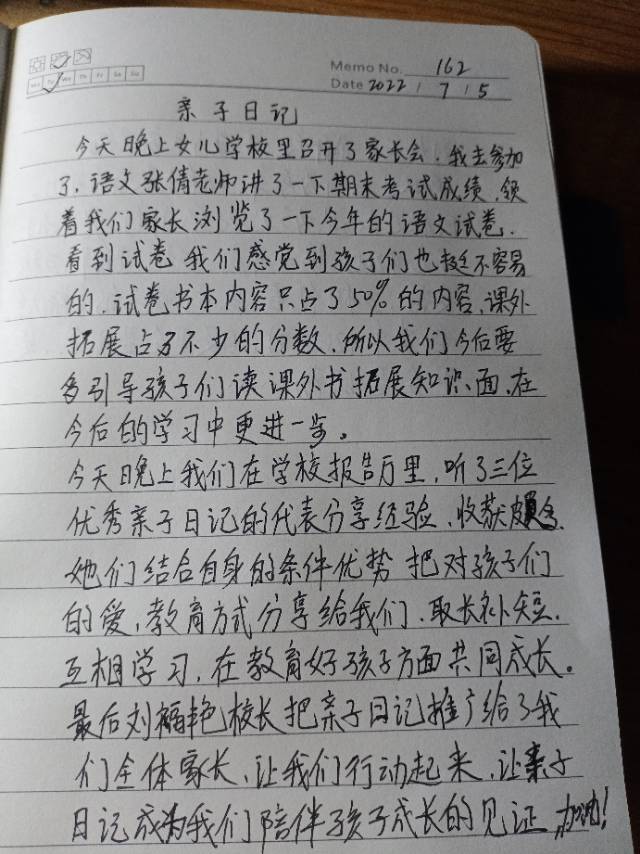 Memo No. 162
Mo Tu We Th Fr Sa Su
Date 2022 / 7 / 5
亲子日记
今天晚上女儿学校里召开了家长会.我去参加
了.语文张倩老师讲了一下期末考试成绩.领
着我们家长浏览了一下今年的语文试卷.
看到试卷 我们感觉到孩子们也挺不容易
的.试卷书本内容只占了50%的内容.课外
拓展占了不少的分数.所以我们今后要
多引导孩子们读课外书拓展知识面.在
今后的学习中更进一步。
今天晚上我们在学校报告厅里.听了三位
优秀亲子日记的代表分享经验.收获颇多.
她们结合自身的条件优势 把对孩子们
的爱.教育方式分享给我们.取长补短.
互相学习.在教育好孩子方面共同成长。
最后刘福艳校长把亲子日记推广给了我
们全体家长.让我们行动起来.让亲子
日记成为我们陪伴孩子成长的见证.加油!